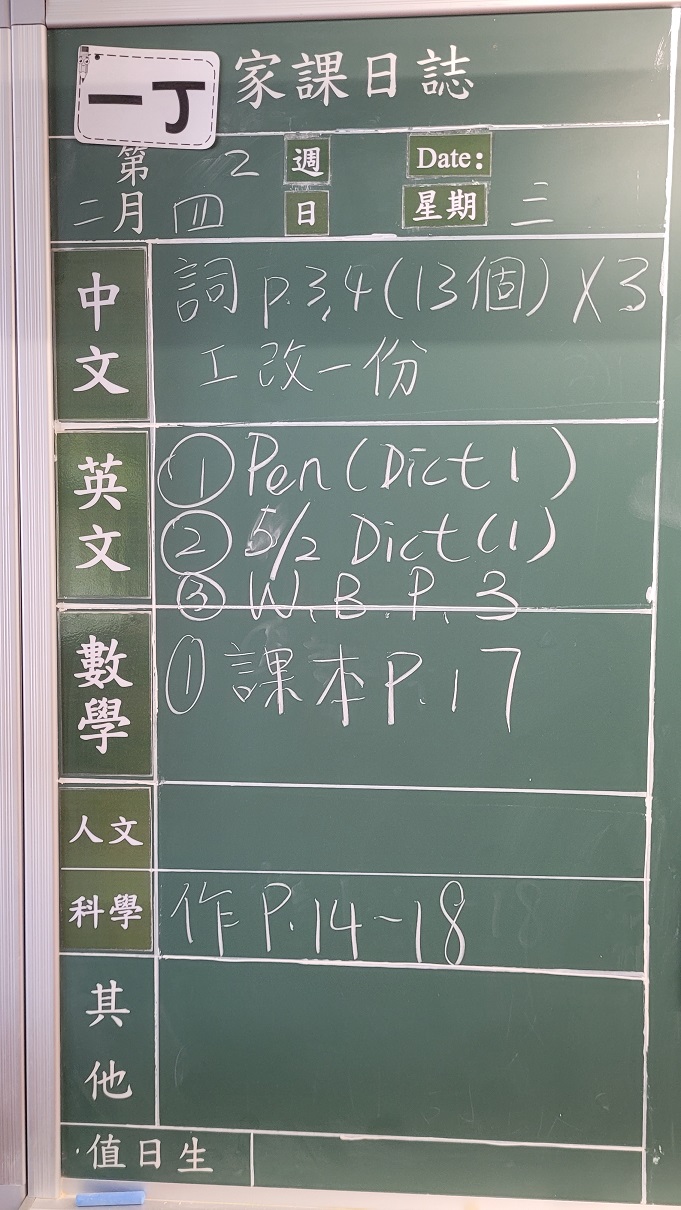 一丁
家課日誌
第 2 週 Date:
二月 四 日 星期 三
中文 詞 p.3,4(13個) X3
工改一份
英文 ① Pen (Dict 1)
② 5/2 Dict (1)
③ W.B. P. 3
數學 ① 課本 P.17
人文
科學 作 P.14~18
其他
值日生